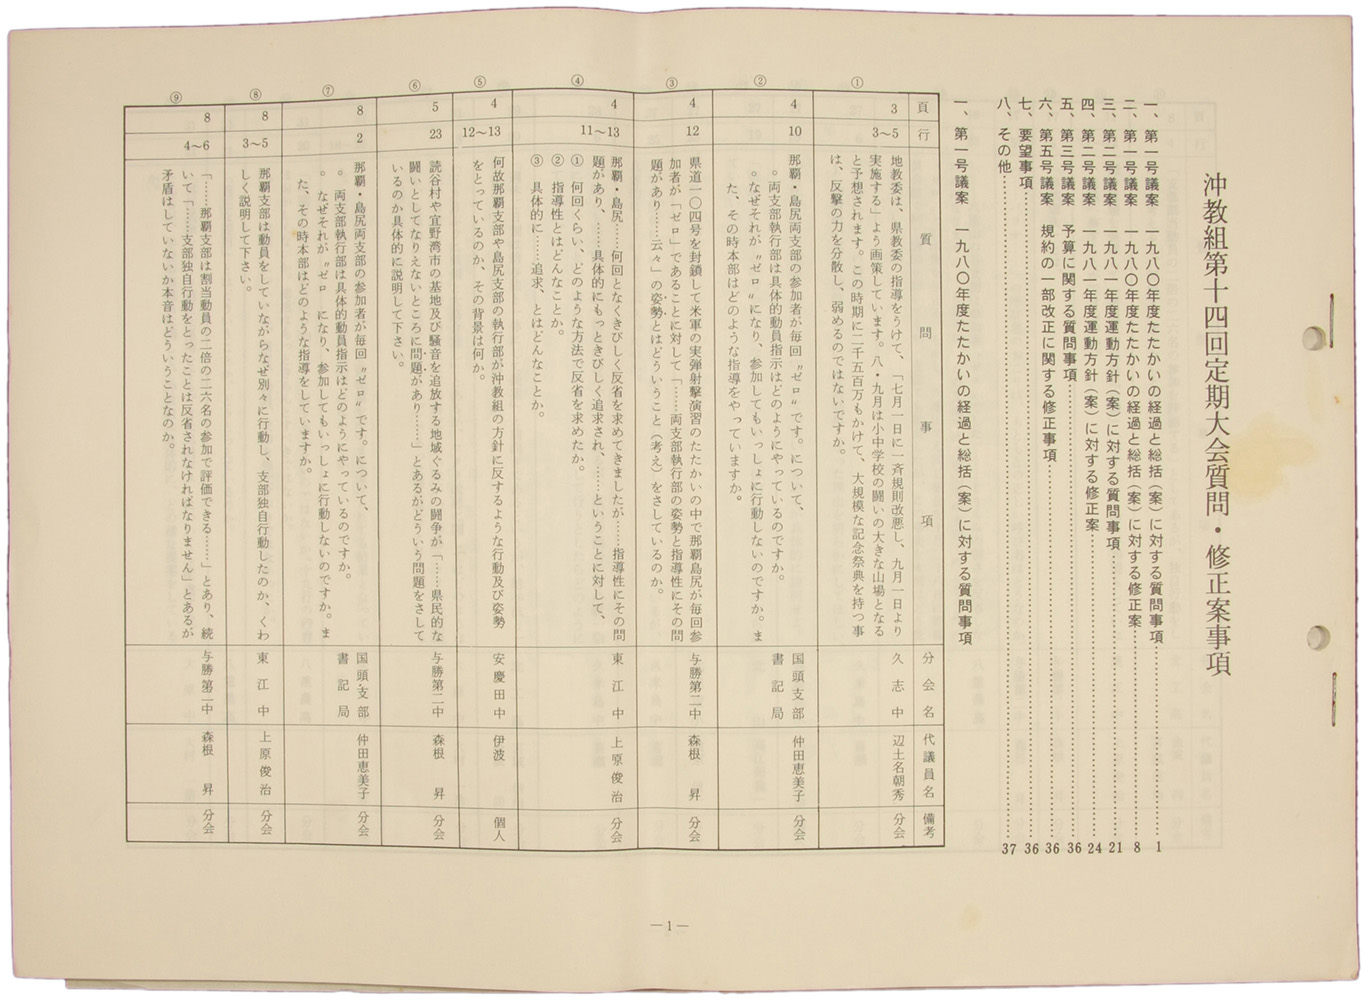 沖教組第十四回定期大会質問・修正案事項
一、第一号議案　一九八〇年度たたかいの経過と総括（案）に対する質問事項……1
二、第一号議案　一九八〇年度たたかいの経過と総括（案）に対する修正案……8
三、第二号議案　一九八一年度運動方針（案）に対する質問事項……21
四、第二号議案　一九八一年度運動方針（案）に対する修正案……24
五、第三号議案　予算に関する質問事項……36
六、第五号議案　規約の一部改正に関する修正事項……36
七、要望事項……36
八、その他……37
一、第一号議案　一九八〇年度たたかいの経過と総括（案）に対する質問事項
頁　行　質問事項　分会名　代議員名　備考
①　3　3～5
地教委は、県教委の指導をうけて、「七月一日に一斉規則改悪し、九月一日より
実施する」よう画策しています。八・九月は小中学校の闘いの大きな山場となる
と予想されます。この時期に一千五百万もかけて、大規模な記念祭典を持つ事
は、反撃の力を分散し、弱めるのではないですか。
久志中　辺土名朝秀　分会
②　4　10
那覇・島尻両支部の参加者が毎回〝ゼロ〟です。について、
。両支部執行部は具体的動員指示はどのようにやっているのですか。
。なぜそれが〝ゼロ〟になり、参加してもいっしょに行動しないのですか。ま
た、その時本部はどのような指導をやっていますか。
国頭支部
書記局
仲田恵美子　分会
③　4　12
県道一〇四号を封鎖して米軍の実弾射撃演習のたたかいの中で那覇島尻が毎回参
加者が「ゼロ」であることに対して「……両支部執行部の姿勢と指導性にその問
題があり……云々」の姿勢とはどういうこと（考え）をさしているのか。
与勝第二中　森根　昇　分会
④　4　11～13
那覇・島尻……何回となくきびしく反省を求めてきましたが……指導性にその問
題があり、……具体的にもっときびしく追求され、……ということに対して、
①　何回くらい、どのような方法で反省を求めたか。
②　指導性とはどんなことか。
③　具体的に……追求、とはどんなことか。
東江中　上原俊治　分会
⑤　4　12～13
何故那覇支部や島尻支部の執行部が沖教組の方針に反するような行動及び姿勢
をとっているのか、その背景は何か。
安慶田中　伊波　個人
⑥　5　23
読谷村や宜野湾市の基地及び騒音を追放する地域ぐるみの闘争が「……県民的な
闘いとしてなりえないところに問題があり……」とあるがどういう問題をさして
いるのか具体的に説明して下さい。
与勝第二中　森根　昇　分会
⑦　8　2
那覇・島尻両支部の参加者が毎回〝ゼロ〟です。について、
。両支部執行部は具体的動員指示はどのようにやっているのですか。
。なぜそれが〝ゼロ〟になり、参加してもいっしょに行動しないのですか。ま
た、その時本部はどのような指導をしていますか。
国頭支部
書記局
仲田恵美子　分会
⑧　8　3～5
那覇支部は動員をしていながらなぜ別々に行動し、支部独自行動したのか、くわ
しく説明して下さい。
東江中　上原俊治　分会
⑨　8　4～6
「……那覇支部は割当動員の二倍の二六名の参加で評価できる……」とあり、続
いて「……支部独自行動をとったことは反省されなければなりません」とあるが
矛盾はしていないか本音はどういうことなのか。
与勝第二中　森根　昇　分会
—1—